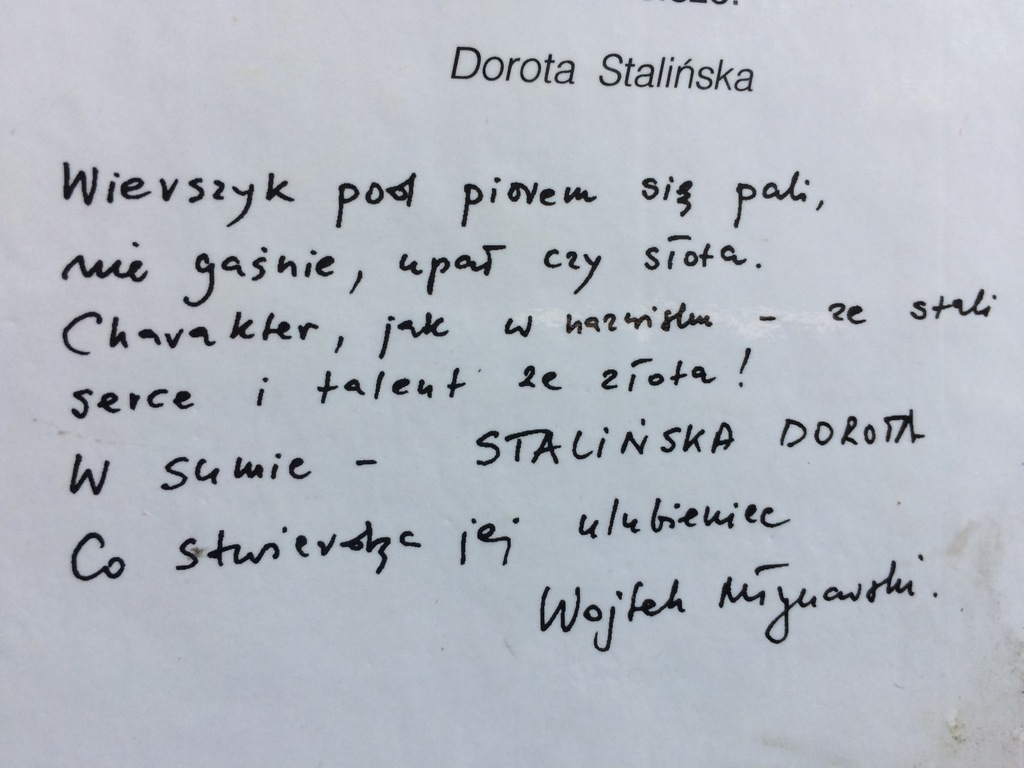 Dorota Stalińska
Wierszyk pod piórem się pali,
nie gaśnie, upał czy słota.
Charakter, jak w nazwisku – ze stali
serce i talent ze złota!
W sumie – STALIŃSKA DOROTA
Co stwierdza jej ulubieniec
Wojtek Młynarski.